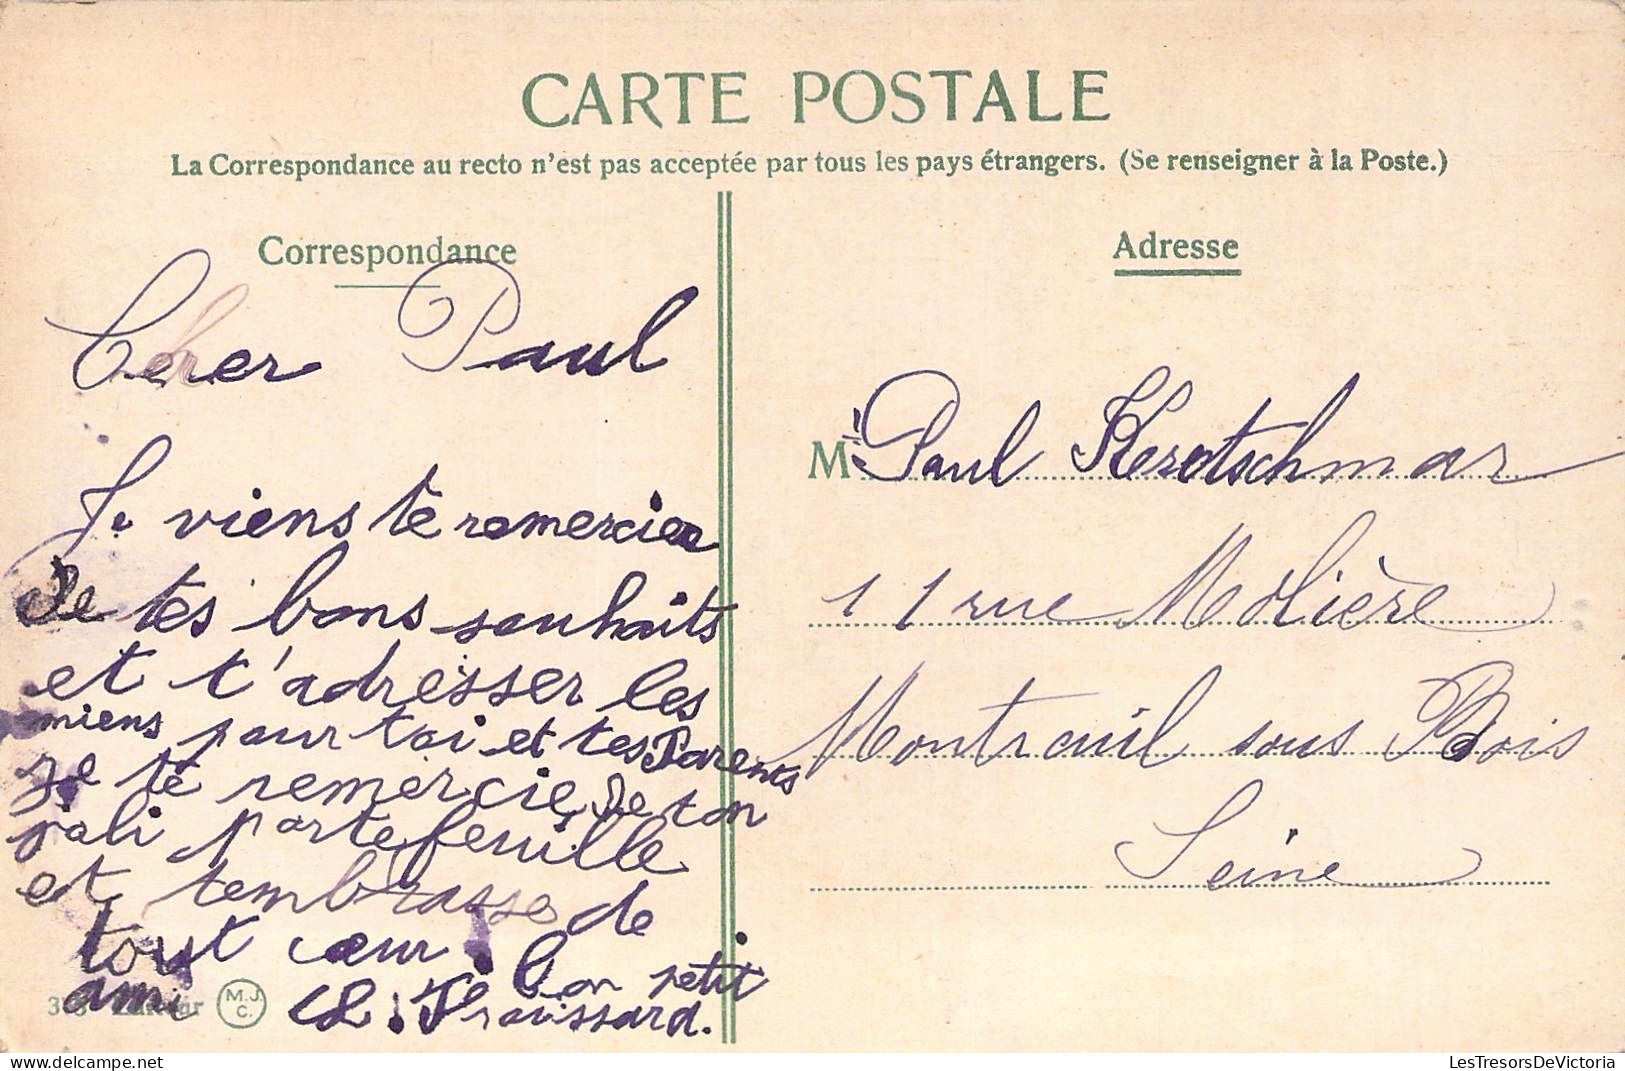 CARTE POSTALE
La Correspondance au recto n'est pas acceptée par tous les pays étrangers. (Se renseigner à la Poste.)
Correspondance
Cher Paul
Je viens te remercier
de tes bons souhaits
et t'adresser les
miens pour toi et tes Parents
je te remercie de ton
joli portefeuille
et tembrasse de
tout cœur. Ton petit
ami Ch.
M.J.
C.
Adresse
M. Paul Kerotschmar
11 rue Molière
Montreuil sous Bois
Seine
LesTresorsDeVictoria